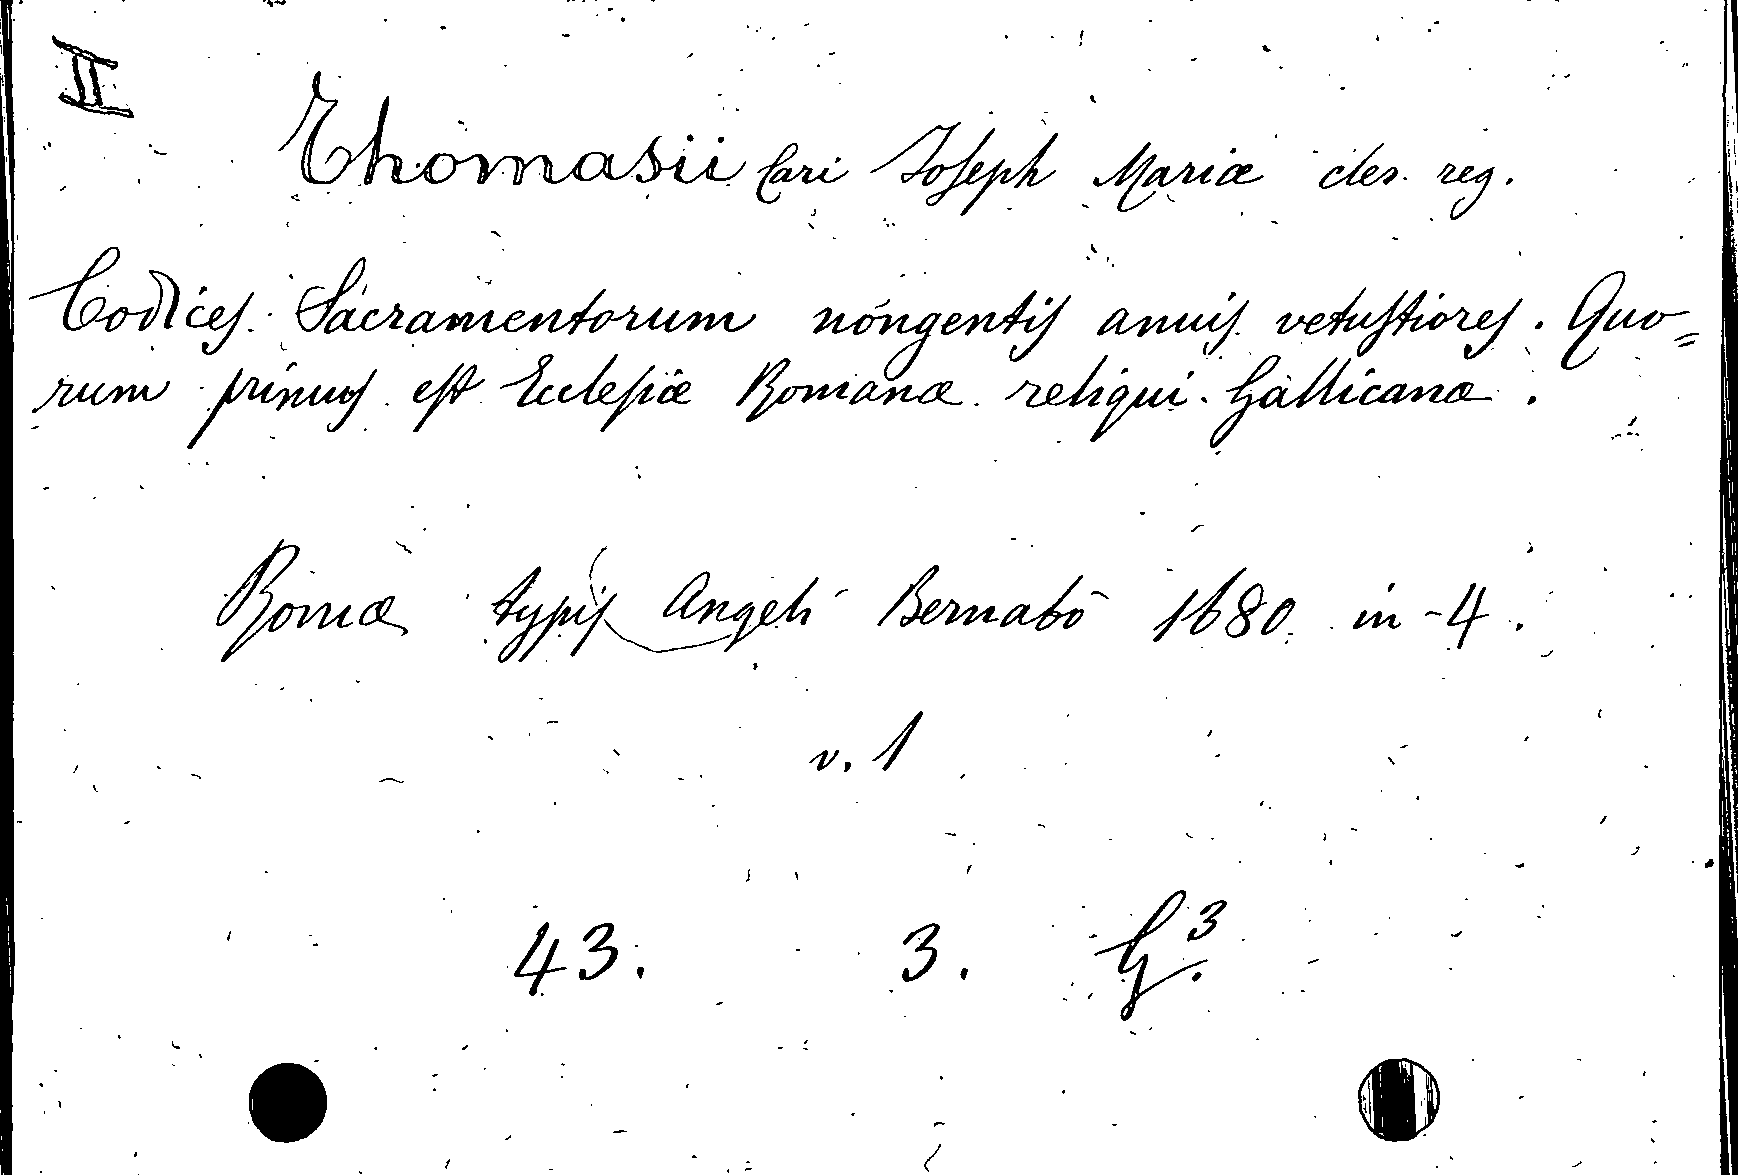 II
Thomasii Cari Joseph Mariæ cler. reg.
Codices Sacramentorum nongentis annis vetustiores. Quo=
rum primus est Ecclesiæ Romanæ reliqui Gallicanæ.
Romæ typis Angeli Bernabò 1680 in-4.
v. 1
43. 3. G.3